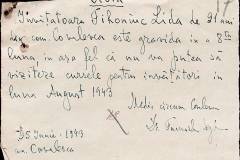 Învățătoarea Tihoniuc Lida de 21 ani
din com. Cosulesca este gravidă în a 8-a
lună, în așa fel că nu va putea să
viziteze cursele pentru învățători în
luna August 1943
Medic circum
Dr.
25 Iunie - 1943